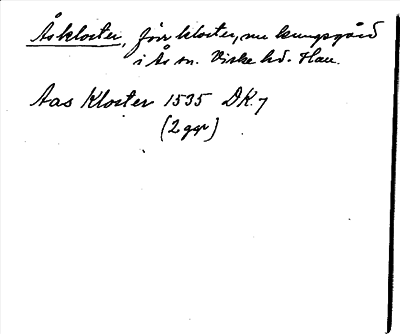 Åskloster, förr kloster, nu kungsgård
i Ås sn. Viske hd. Hall.
Aas Kloster 1535 DK7
(2 ggr)